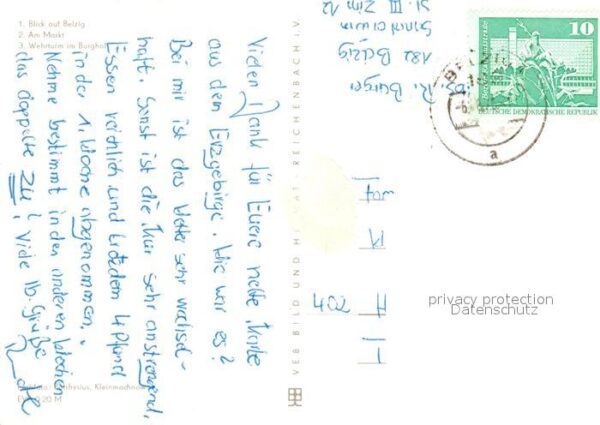 1. Blick auf Belzig
2. Am Markt
3. Wehrturm im Burghof
Vielen Dank für Euere nette Karte
aus dem Erzgebirge. Wie war es?
Bei mir ist das Wetter sehr wechsel-
haft. Sonst ist die Kur sehr anstrengend,
Essen reichlich und trotzdem 4 Pfund
in der 1. Woche abgenommen.
Nehme bestimmt in den anderen Wochen
das doppelte zu! Viele lb. Grüße
Kleinmachnow
20 M
VEB BILD UND HEIMAT REICHENBACH I. V.
R. Burger
182 Belzig
Sanatorium
St. III Zim 12
BELZIG
a
10
DEUTSCHE DEMOKRATISCHE REPUBLIK
402
privacy protection
Datenschutz